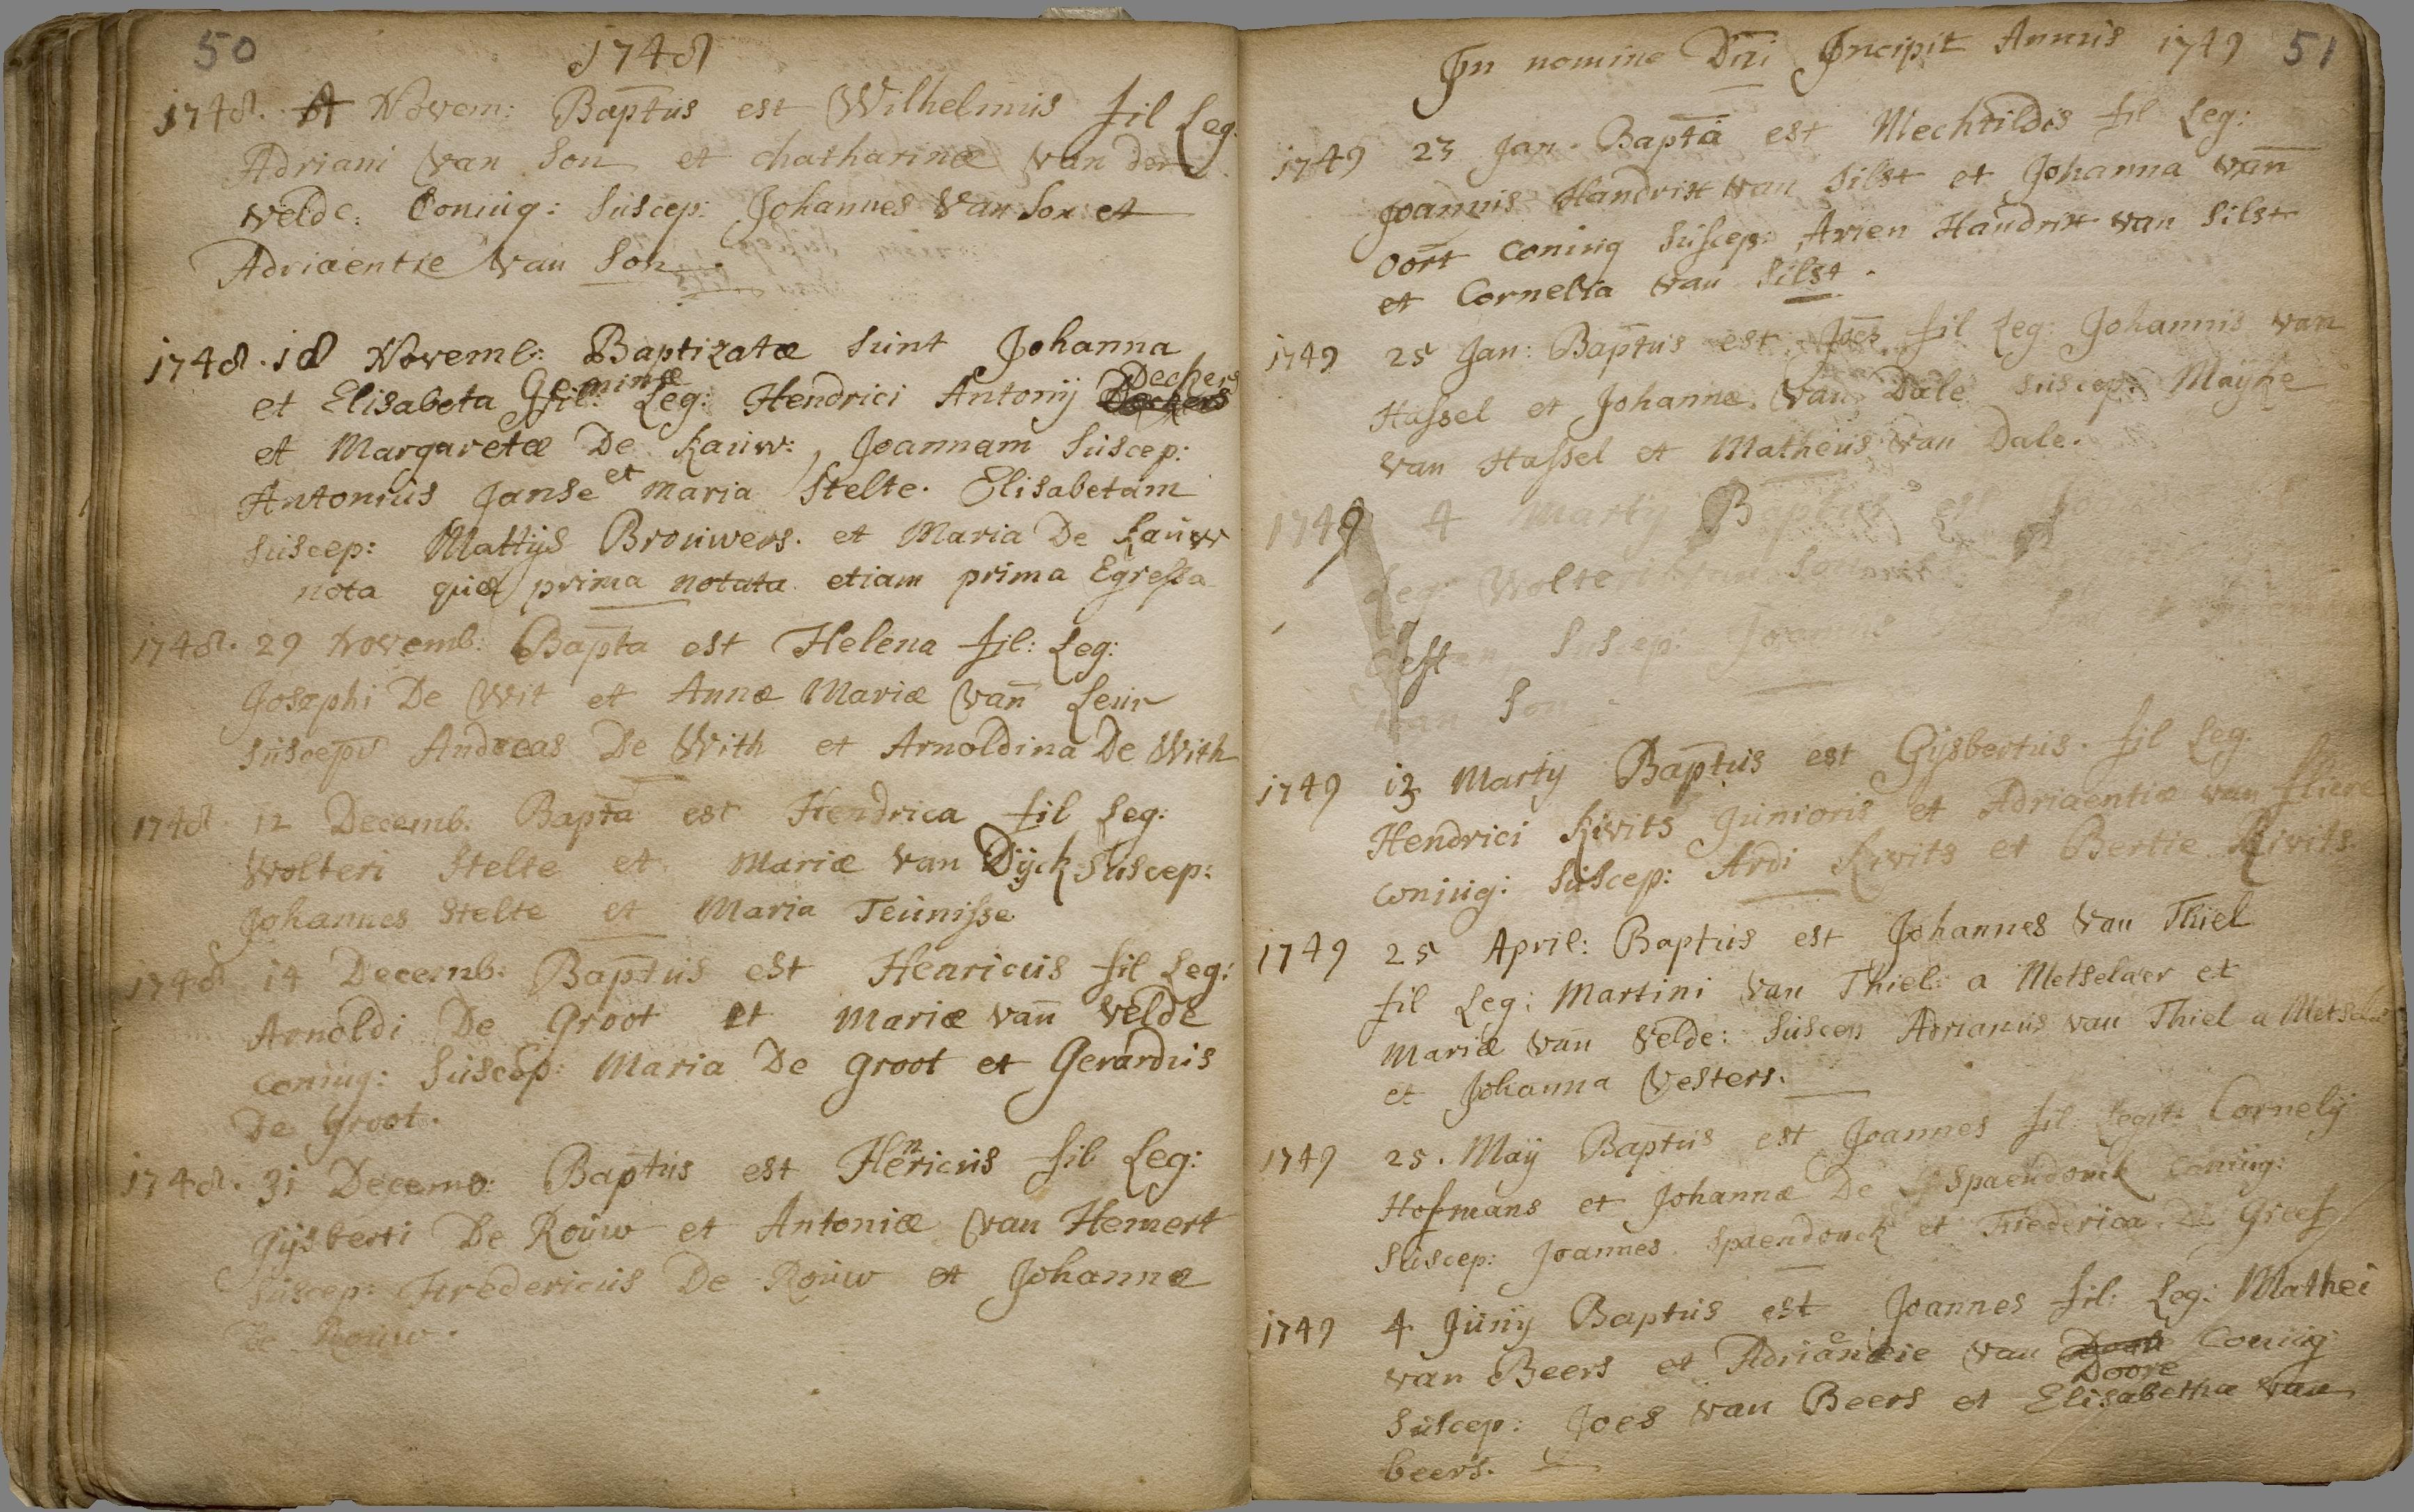 50
1748
1748. Novem: Baptus est Wilhelmus fil Leg:
Adriani van Son et chatharinæ van der
velde. Coniug: Suscep: Johannes van Son et
Adriaentie van Son.
1748. 18 Novemb: Baptizatæ sunt Johanna
et Elisabeta Geminæ fil: Leg: Hendrici Antonij Deckers
et Margaretæ De Kauw:, Joannam Suscep:
Antonius Janse et Maria Stelte. Elisabetam
suscep: Mattijs Brouwers. et Maria De Kauw
nota quæ prima notata etiam prima Egressa
1748. 29 Novemb: Bapta est Helena fil: Leg:
Josephi De Wit et Annæ Mariæ van Leur
Suscep: Andreas De With et Arnoldina De With
1748. 12 Decemb. Bapta est Hendrica fil Leg:
Wolteri Stelte et Mariæ van Dijck Suscep:
Johannes Stelte et Maria Teunisse
1748. 14 Decemb: Baptus est Henricus fil Leg:
Arnoldi De Groot et Mariæ van velde
coniug: Suscep: Maria De groot et Gerardus
De Groot.
1748. 31 Decemb: Baptus est Henricus fil Leg:
Gijsberti De Rouw et Antoniæ van Hemert
Suscep: Fredericus De Rouw et Johanna
De Rouw.
In nomine Dni Incipit Annus 1749 51
1749 23 Jan. Bapta est Mechtildis fil Leg:
Joannis Handrix van Silst et Johanna van
oort coniug Suscep: Arien Handrix van Silst
et Cornelia van Silst.
1749 25 Jan: Baptus est Joes fil Leg: Johannis van
Hassel et Johannæ van Dale suscep: Mayke
van Hassel et Matheus van Dale.
1749 4 Martij Baptus est
Leg: Wolteri
Suscep: Joannes
van Son
1749 13 Martij Baptus est Gijsbertus. fil Leg.
Hendrici Kivits Junioris et Adriaentiæ van
coniug: Suscep: Ardi Kivits et Bertie Kivits.
1749 25 April: Baptus est Johannes van Thiel
fil Leg: Martini van Thiel: a Metselaer et
Mariæ van velde: Suscep Adrianus van Thiel a Metselaer
et Johanna Vesters.
1749 25. May Baptus est Joannes fil: Legit: Cornelij
Hofmans et Johannæ De Spaendonck Coniug:
Suscep: Joannes Spaendonck et Frederica De Greef
1749 4 Junij Baptus est Joannes fil: Leg: Mathei
van Beers et Adriantie van Doore Coniug
Suscep: Joes van Beers et Elisabetha van
beers.